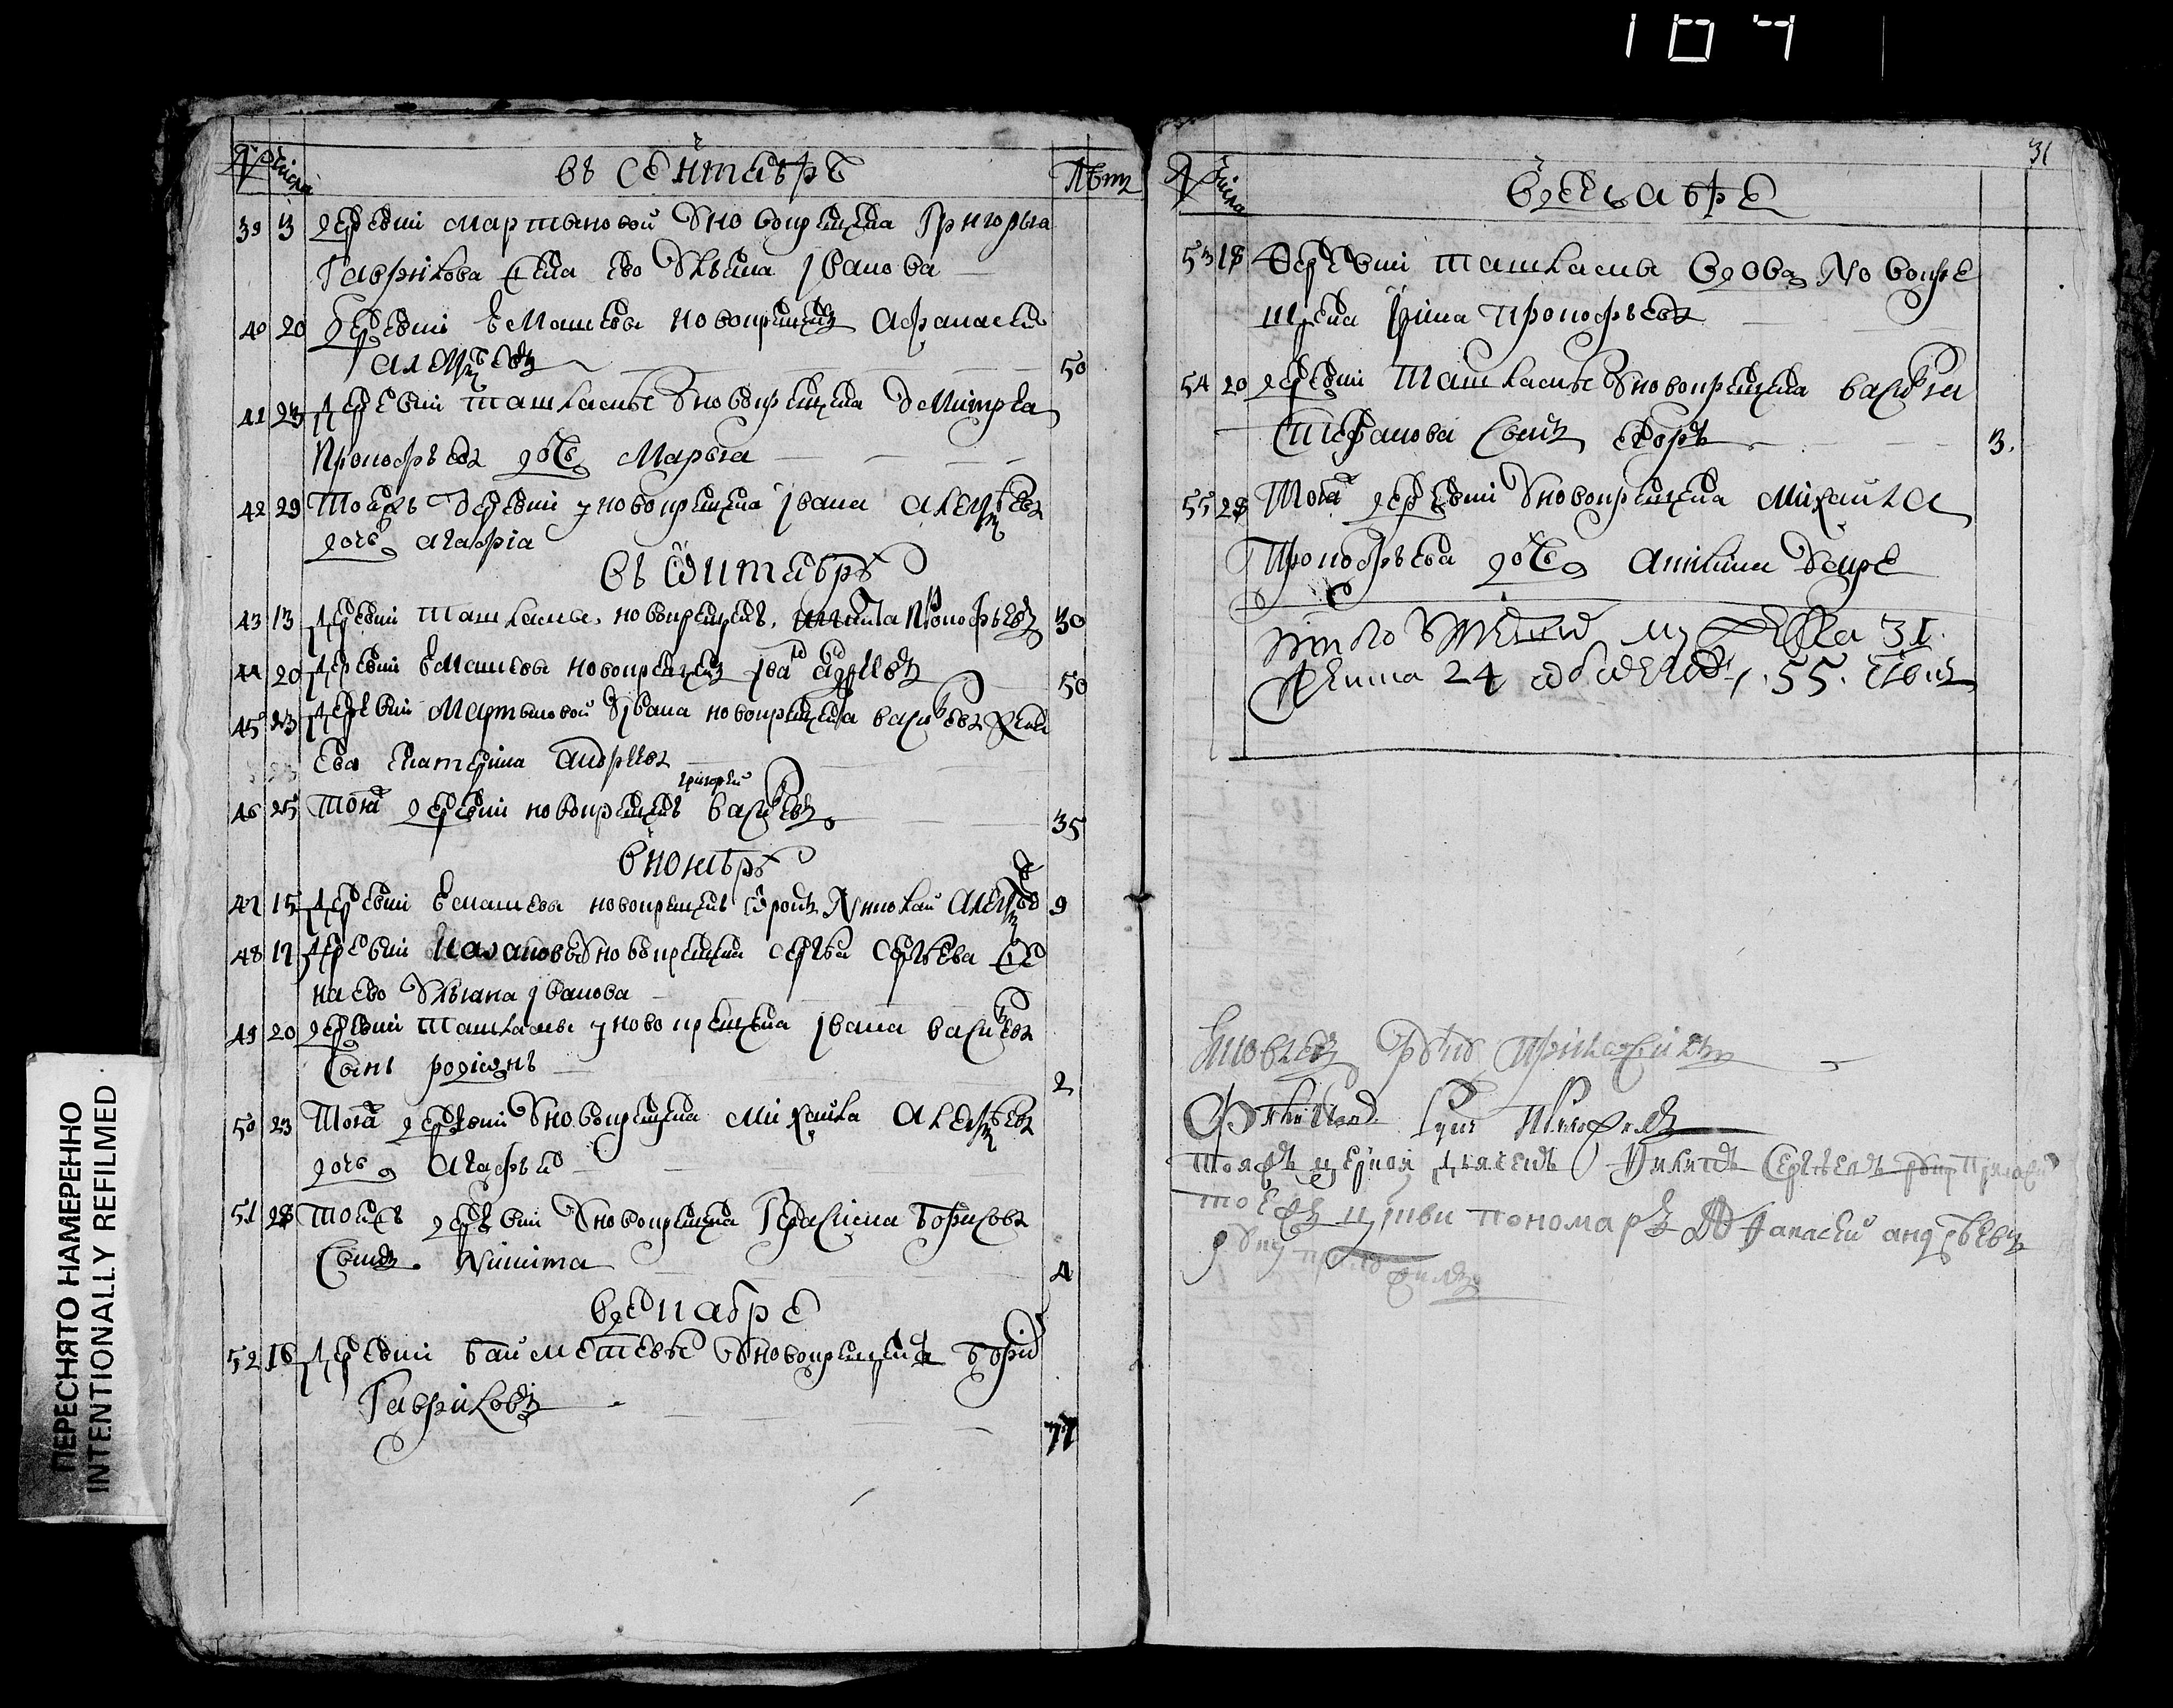 104
№ Числа въ сентябрѣ Лѣтъ
39 13 деревни Мартыновой у новокрещена Григорья
Гаврилова жена ево Ульяна Иванова
40 20 деревни Елышевы новокрещенъ Афанасей
Алексѣевъ 50
41 23 деревни Ташкасы у новокрещена Дмитрея
Прокофьева дочь Марья
42 29 тоежъ деревни у новокрещена Ивана Алексѣева
дочь агафія
въ октябрѣ
43 13 деревни Ташкасы новокрещенъ Никита Прокофьевъ 30
44 20 деревни новокрещенъ Иванъ Андреевъ 50
45 23 деревни Мартыновой у Ивана новокрещена Васильева жена
ево Екатерина Андреева
46 25 тоя деревни новокрещенъ григорей Васильевъ 35
в ноябрѣ
47 15 деревни новокрещенъ отрокъ Николай Алексѣевъ 9
48 17 деревни у новокрещена Сергѣя Сергѣева же
на ево Ульяна Иванова
49 20 деревни Ташкасы у новокрещена Ивана Васильева
сынъ родионъ 2
50 23 Тоя деревни у новокрещена михаила Алексѣева
дочь Агафья
51 28 тоежъ деревни у новокрещена Герасима Борисова
сынъ Никита 4
в декабре
52 16 деревни новокрещенъ Борисъ
Гавриловъ 77
31
№ Числа в декабре
53 18 деревни Ташкасы вдова новокре
щена Ирина Прокофьева
54 20 деревни Ташкасы у новокрещена Василья
Стефанова сынъ Егоръ 3.
55 28 Тоя деревни у новокрещена Михаила
Прокофьева дочь Акилина
итого умерших муж пола 31.
женска 24 обоего 55. члвкъ
Иовлевъ руку приложилъ
руку приложилъ
тояжъ церкви дьячекъ Никита Сергѣевъ руку приложилъ
тоежъ церкви пономарь Афанасей андрѣевъ
руку приложилъ
ПЕРЕСНЯТО НАМЕРЕННО
INTENTIONALLY REFILMED